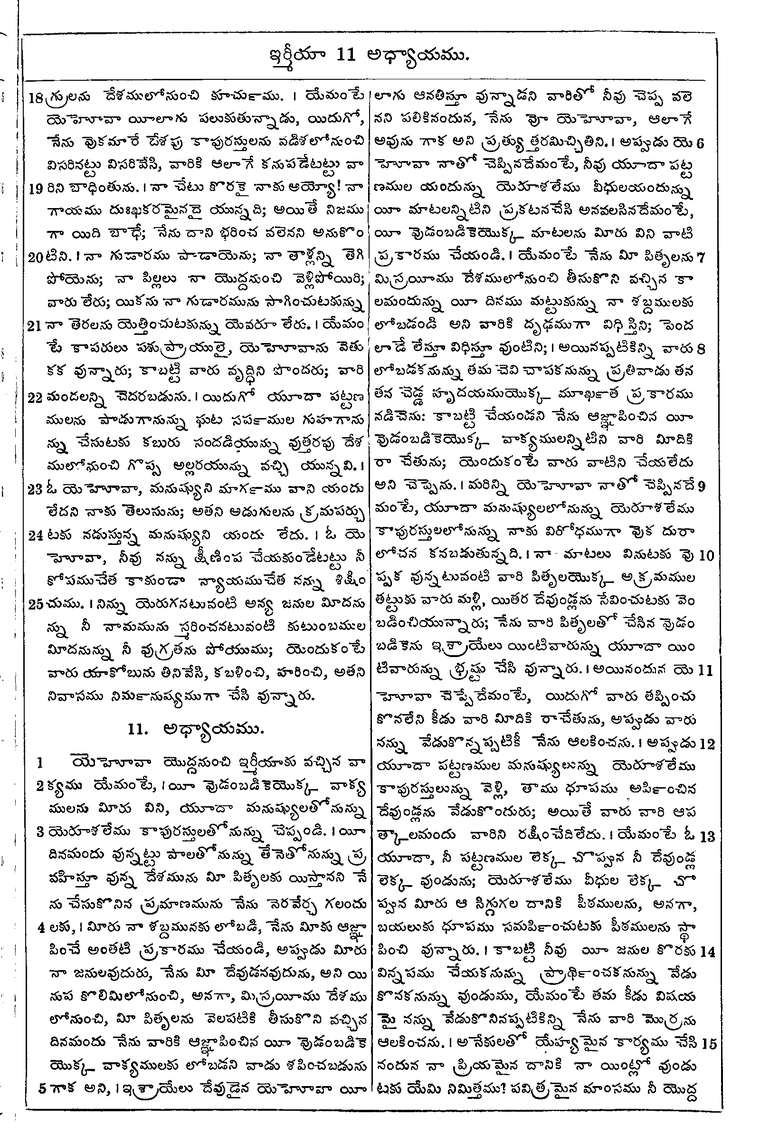 ఇర్మీయా 11 అధ్యాయము.
18 గ్రులను దేశములోనుంచి కూచు౯ము. । యేమంటే
యెహోవా యీలాగు పలుకుతున్నాడు, యిదుగో,
నేను వుకమారే దేశపు కాపురస్తులను వడిశలోనుంచి
విసరినట్టు విసరివేసి, వారికి ఆలాగే కనుపడేటట్టు వా
19 రిని బాధింతును. । నా చేటు కొరకై నాకు అయ్యో! నా
గాయము దుఃఖకరమైనదై యున్నది; అయితే నిజము
గా యిది బాధే; నేను దాని భరించ వలెనని అనుకొం
20 టిని. । నా గుడారము పాడాయెను; నా తాళ్లన్ని తెగి
పోయెను; నా పిల్లలు నా యొద్దనుంచి వెళ్లిపోయిరి;
వారు లేరు; యికను నా గుడారమును సాగించుటకున్ను
21 నా తెరలను యెత్తించుటకున్ను యెవరూ లేరు. । యేమం
టే కాపరులు పశుప్రాయులై, యెహోవాను వెతు
కక వున్నారు; కాబట్టి వారు వృద్ధిని పొందరు; వారి
22 మందలన్ని చెదరబడును. । యిదుగో యూదా పట్టణ
ములను పాడుగానున్ను ఘట సప౯ముల గుహగాను
న్ను చేసుటకు కబురు సందడియున్ను వుత్తరపు దేశ
ములోనుంచి గొప్ప అల్లరయున్ను వచ్చి యున్నవి. ।
23 ఓ యెహోవా, మనుష్యుని మాగ౯ము వాని యందు
లేదని నాకు తెలుసును; అతని అడుగులను క్రమపర్చు
24 టకు నడుస్తున్న మనుష్యుని యందు లేదు. । ఓ యె
హోవా, నీవు నన్ను క్షీణింప చేయకుండేటట్టు నీ
కోపముచేత కాకుండా న్యాయముచేత నన్ను శిక్షిం
25 చుము. । నిన్ను యెరుగనటువంటి అన్య జనుల మీదను
న్ను నీ నామమును స్మరించనటువంటి కుటుంబముల
మీదనున్ను నీ వుగ్రతను పోయుము; యెందుకంటే
వారు యాకోబును తినివేసి, కబళించి, హరించి, అతని
నివాసము నిమ౯నుష్యముగా చేసి వున్నారు.
11. అధ్యాయము.
1 యెహోవా యొద్దనుంచి ఇర్మీయాకు వచ్చిన వా
2 క్యము యేమంటే, । యీ వుడంబడికెయొక్క వాక్య
ములను మీరు విని, యూదా మనుష్యులతోనున్ను
3 యెరూశలేము కాపురస్తులతోనున్ను చెప్పండి. । యీ
దినమందు వున్నట్టు పాలతోనున్ను తేనెతోనున్ను ప్ర
వహిస్తూ వున్న దేశమును మీ పితృలకు యిస్తానని నే
ను చేసుకొనిన ప్రమాణమును నేను నెరవేర్చ గలందు
4 లకు, । మీరు నా శబ్దమునకు లోబడి, నేను మీకు ఆజ్ఞా
పించే అంతటి ప్రకారము చేయండి, అప్పుడు మీరు
నా జనులవుదురు, నేను మీ దేవుడనవుదును, అని యి
నుప కొలిమిలోనుంచి, అనగా, మిస్రయీము దేశము
లోనుంచి, మీ పితృలను వెలపటికి తీసుకొని వచ్చిన
దినమందు నేను వారికి ఆజ్ఞాపించిన యీ వుడంబడికె
యొక్క వాక్యములకు లోబడని వాడు శపించబడును
5 గాక అని, । ఇశ్రాయేలు దేవుడైన యెహోవా యీ
లాగు ఆనతిస్తూ వున్నాడని వారితో నీవు చెప్ప వలె
నని పలికినందున, నేను వూ యెహోవా, ఆలాగే
అవును గాక అని ప్రత్యుత్తరమిచ్చితిని. । అప్పుడు యె 6
హోవా నాతో చెప్పినదేమంటే, నీవు యూదా పట్ట
ణముల యందున్ను యెరూశలేము వీధులయందున్ను
యీ మాటలన్నిటిని ప్రకటనచేసి అనవలసినదేమంటే,
యీ వుడంబడికెయొక్క మాటలను మీరు విని వాటి
ప్రకారము చేయండి. । యేమంటే నేను మీ పితృలను 7
మిస్రయీము దేశములోనుంచి తీసుకొని వచ్చిన కా
లమందున్ను యీ దినము మట్టుకున్ను నా శబ్దములకు
లోబడండి అని వారికి దృఢముగా విధిస్తిని; పెంద
లాడే లేస్తూ విధిస్తూ వుంటిని; । అయినప్పటికిన్ని వారు 8
లోబడకనున్ను తమ చెవి చాపకనున్ను ప్రతివాడు తన
తన చెడ్డ హృదయముయొక్క మూఖ౯త ప్రకారము
నడిచెను: కాబట్టి చేయండని నేను ఆజ్ఞాపించిన యీ
వుడంబడికెయొక్క వాక్యములన్నిటిని వారి మీదికి
రా చేతును; యెందుకంటే వారు వాటిని చేయలేదు
అని చెప్పెను. । మరిన్ని యెహోవా నాతో చెప్పినదే 9
మంటే, యూదా మనుష్యులలోనున్ను యెరూశలేము
కాపురస్తులలోనున్ను నాకు విరోధముగా వుక దురా
లోచన కనబడుతున్నది. । నా మాటలు వినుటకు వు 10
ప్పక వున్నటువంటి వారి పితృలయొక్క అక్రమముల
తట్టుకు వారు మళ్లి, యితర దేవుండ్లను సేవించుటకు వెం
బడించియున్నారు; నేను వారి పితృలతో చేసిన వుడం
బడికెను ఇశ్రాయేలు యింటివారున్ను యూదా యిం
టివారున్ను భ్రష్టు చేసి వున్నారు. । అయినందున యె 11
హోవా చెప్పేదేమంటే, యిదుగో వారు తప్పించు
కొనలేని కీడు వారి మీదికి రాచేతును, అప్పుడు వారు
నన్ను వేడుకొన్నప్పటికీ నేను ఆలకించను. । అప్పుడు 12
యూదా పట్టణముల మనుష్యులున్ను యెరూశలేము
కాపురస్తులున్ను వెళ్లి, తాము ధూపము అపి౯ంచిన
దేవుండ్లను వేడుకొందురు; అయితే వారు వారి ఆప
త్కాలమందు వారిని రక్షించేదిలేదు. । యేమంటే ఓ 13
యూదా, నీ పట్టణముల లెక్క చొప్పున నీ దేవుండ్ల
లెక్క వుండును; యెరూశలేము వీధుల లెక్క చొ
ప్పున మీరు ఆ సిగ్గుగల దానికి పీఠములను, అనగా,
బయలుకు ధూపము సమపి౯ంచుటకు పీఠములను స్థా
పించి వున్నారు. । కాబట్టి నీవు యీ జనుల కొరకు 14
విన్నపము చేయకనున్ను ప్రాథి౯ంచకనున్ను వేడు
కొనకనున్ను వుండుము, యేమంటే తమ కీడు విషయ
మై నన్ను వేడుకొనినప్పటికిన్ని నేను వారి మొర్రను
ఆలకించను. । అనేకులతో యేహ్యమైన కార్యము చేసి 15
నందున నా ప్రియమైన దానికి నా యింట్లో వుండు
టకు యేమి నిమిత్తము? పవిత్రమైన మాంసము నీ యొద్ద